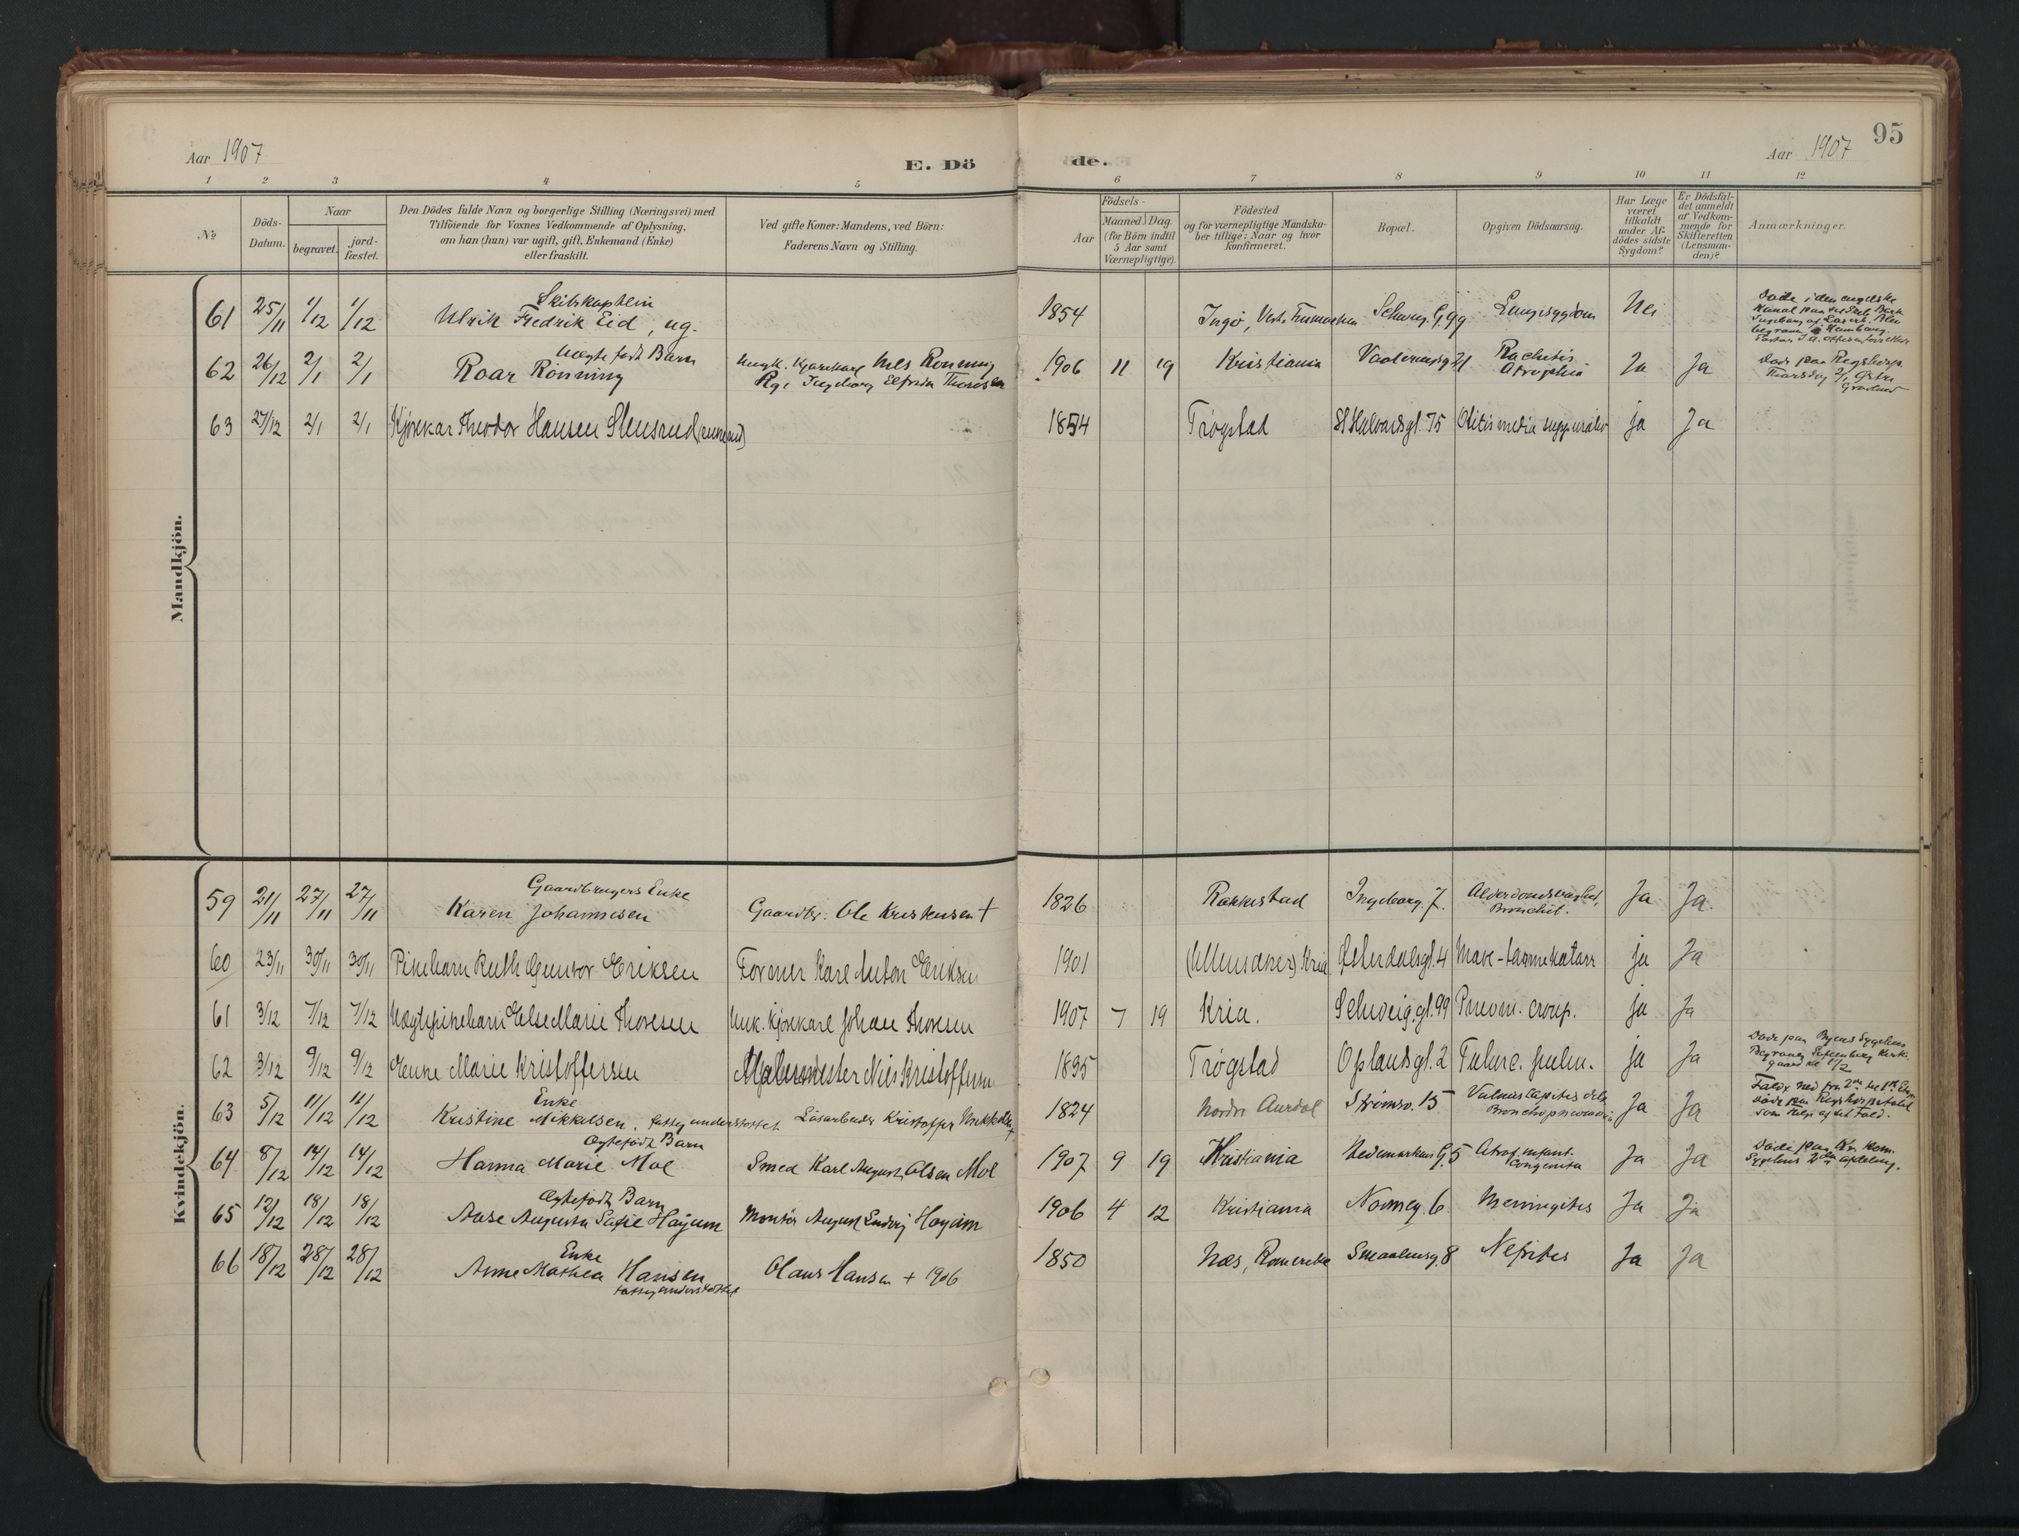 Aar 1907
E. Dö
de.
Aar 1907
95
1 2 3 4 5 6 7 8 9 10 11 12
№
Döds-
Datum.
Naar
begravet.
jord-
fæstet.
Den Dödes fulde Navn og borgerlige Stilling (Næringsvei) med
Tilföiende for Voxnes Vedkommende af Oplysning,
om han (hun) var ugift, gift, Enkemand (Enke)
eller fraskilt.
Ved gifte Koner: Mandens, ved Börn:
Faderens Navn og Stilling.
Födsels-
Aar
Maaned. Dag.
(for Börn indtil
5 Aar samt
Værnepligtige).
Födested
og for værnepligtige Mandska-
ber tillige: Naar og hvor
konfirmeret.
Bopæl.
Opgiven Dödsaarsag.
Har Læge
været
tilkaldt
under Af-
dödes sidste
Sygdom?
Er Dödsfal-
det anmeldt
af Vedkom-
mende for
Skifteretten
(Lensman-
den)?
Anmærkninger.
Mandkjön.
Skibskaptein
61 25/11 1/12 1/12 Ulrik Fredrik Eid, ug. 1854 Ingö, Schweig. 99 Lungesygdom Nei
Døde i den engelske
Kanal
Uægte født Barn
62 26/12 2/1 2/1 Roar Rönning Uægt. Kjørekarl Nils Rönning 1906 11 19 Kristiania Vaalerengg. 71 Rachitis Ja Ja
Pg. Ingeborg Elfrida Thoresen
Atrophia
Døde paa Rigshosp.
Thorsdag 2/1 Østre
Gravlund
63 27/12 2/1 2/1 Kjørekar Theodor Hansen Stensrud (enkemd) 1854 Trøgstad St Halvardsgt. 75 Otitis media suppurativ ja Ja
Kvindekjön.
Gaardbrugers Enke
59 21/11 27/11 27/11 Karen Johannesen Gaardbr. Ole Kristensen † 1826 Rakkestad Ingeborg. 7. Alderdomssvaghed, Ja Ja.
Bronchit.
60 23/11 30/11 30/11 Pikebarn Ruth Gunvor Eriksen Former Karl Anton Eriksen 1901 (Ullensaker) Kria Østerdalsgt. 4 Mave-tarmekatarr ja Ja
61 3/12 7/12 7/12 Uægtepikebarn Else Marie Thoresen Unk. kjørekarl Johan Thoresen 1907 7 19 Kria. Schweig.gt. 99 Pneum. croup. ja Ja
62 3/12 9/12 9/12 Marie Kristoffersen Malermester Nils Kristoffersen 1895 Trøgstad Oplandsgt. 2 Tuberc. pulm. ja Ja
Døde paa Byens Sygehus
Enke
63 5/12 11/12 11/12 Kristine Mikkelsen, fattigunderstøttet Løsarbeider Kristoffer Mikkelsen † 1824 Nordre Aurdal Strømsv. 15 Vulnus capitis Ja Ja
Bronchopneumoni
Faldt ned fra 2den til 1ste Etage
Døde paa Rigshospitalet
som Følge af det Fald.
Ægtefødt Barn
64 8/12 14/12 14/12 Harma Marie Mol Smed Karl August Olsen Mol 1907 9 19 Kristiania Hedemarkens G. 5 Atrof. infant. Ja Ja
Congenita
Døde paa Kr. Kom.
Sygehus 2den afdeling.
Ægtefødt Barn
65 12/12 18/12 18/12 Aase Augusta Sofie Høyum Montör August Ludvig Høyum 1906 4 12 Kristiania Normeg. 6. Meningitis Ja Ja
Enke
66 18/12 28/12 28/12 Anne Mathea Hansen Olaus Hansen † 1906 1850 Næs, Romerike Smaalensg. 8 Nefritis Ja Ja
fattigunderstøttet